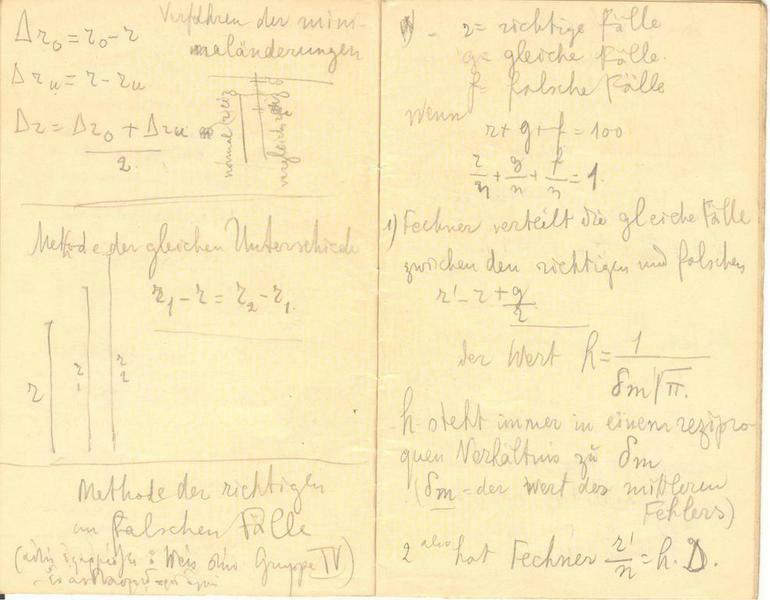 Verfahren der mini-
maländerungen
Δr₀ = r₀ - r
Δr u = r - r u
Δr = Δr₀ + Δr u
2
normalreiz
vergleichsreiz
Methode der gleichen Unterschiede
r₁ - r = r₂ - r₁.
r
r₁
r₂
Methode der richtigen
un falschen Fälle
Gruppe IV)
r = richtige Fälle
g = gleiche Fälle.
f = falsche Fälle
Wenn
r + g + f = 100
r/n + g/n + f/n = 1.
1) Fechner verteilt die gleiche Fälle
zwischen den richtigen und falschen
r' - r + g/2
der Wert h = 1/δm√π.
h steht immer in einem rezipro-
quen Verhältnis zu δm
(δm = der Wert des mittleren
Fehlers)
2 also hat Fechner r'/n = h. D.